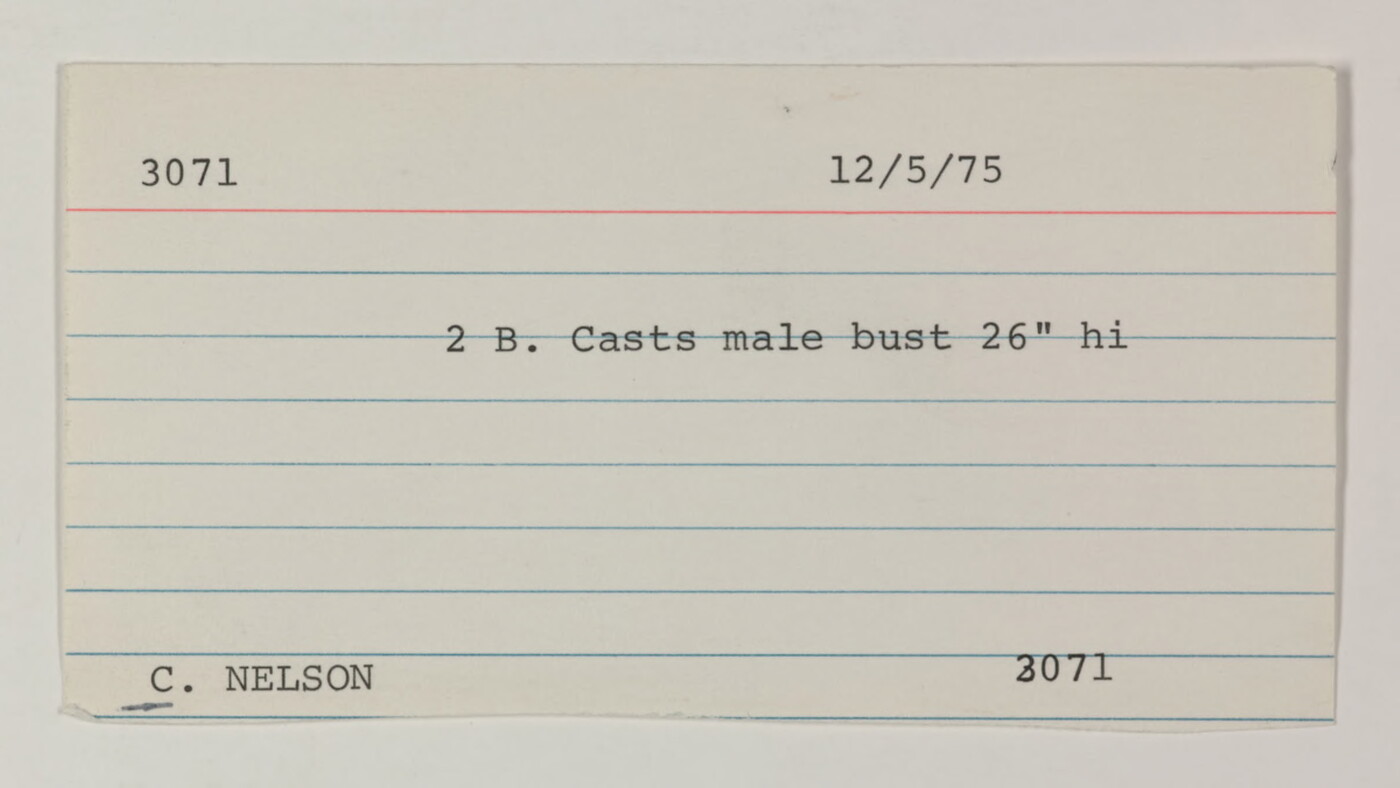 3071 12/5/75
2 B. Casts male bust 26" hi
C. NELSON 3071